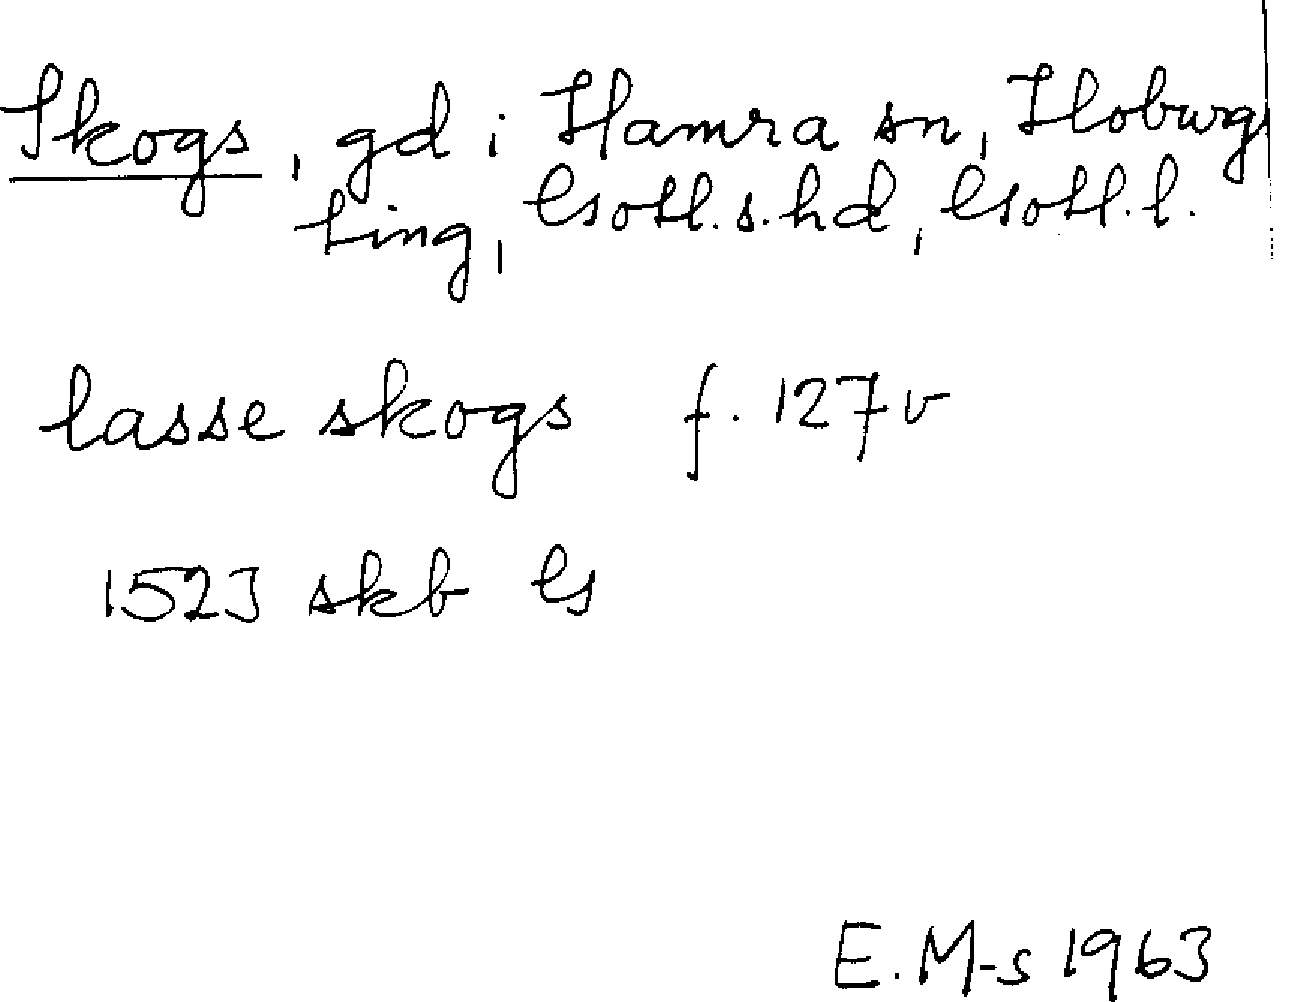 Skogs, gd i Hamra sn, Hoburg
ting, Gotl.s.hd, Gotl.l.
lasse skogs f. 127v
1523 skb G
E.M-s 1963